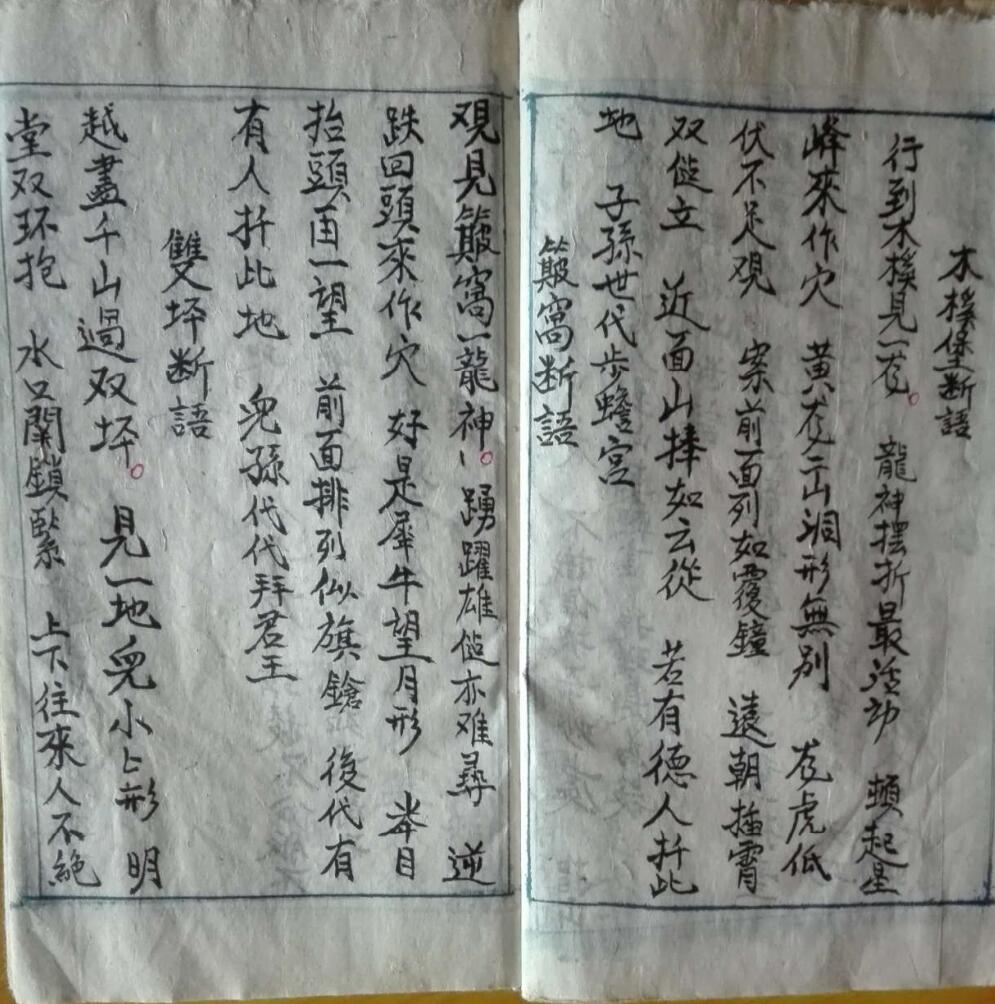 木樨堡断語
行到木樨見一龙 龍神摆折最活动 頓起星
峰來作穴 黄龙二山洞形無别 龙虎低
伏不足观 案前面列如覆鐘 遠朝插霄
双㑽立 近面山捧如云從 若有德人扦此
地 子孫世代步蟾宫
簸窩断語
观見簸窩一龍神 踴躍雄㑽亦难尋 逆
跌回頭來作穴 好是犀牛望月形 举目
抬頭用一望 前面排列似旗鎗 後代有
有人扦此地 兒孫代代拜君王
雙坪断語
越盡千山過双坪 見一地兒小上形 明
堂双环抱 水口關鎖緊 上下往來人不絶